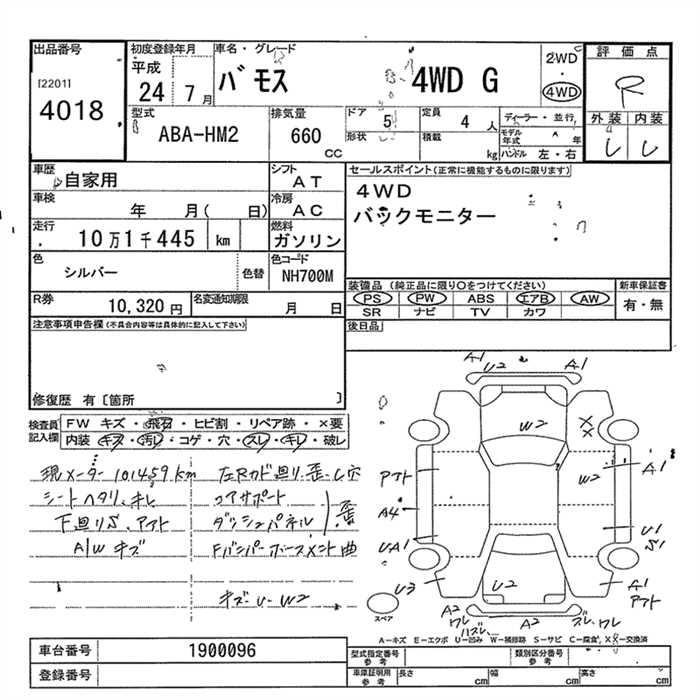 出品番号 初度登録年月 車名・グレード 評価点
[2201] 4018 平成 24 7月 バモス 4WD G 2WD ・ 4WD R
外装 内装
型式 ABA-HM2 排気量 660 CC ドア 5 定員 4 人 ディーラー・並行
形状 積載 kg モデル年式 年 ハンドル 左・右
車歴 自家用 シフト AT セールスポイント(正常に機能するものに限ります)
車検 年 月( 日) 冷房 AC 4WD
走行 10万1千445 km 燃料 ガソリン バックモニター
色 シルバー 色替 色コード NH700M
装備品(純正品に限り○をつけてください) 新車保証書
R券 10,320円 名変通知期限 月 日 PS PW ABS エアB AW 有・無
SR ナビ TV カワ
注意事項申告欄(不具合内容等は具体的に記入して下さい) 後日品
修復歴 有〔箇所 〕
検査員記入欄 FW キズ・飛石・ヒビ割・リペア跡・×要
内装・キズ・汚レ・コゲ・穴・スレ・キレ・破レ
現メーター101459km 左Rカド廻り歪し穴
シートヘタリ、キレ コアサポート
下廻りS、アフト ダッシュパネル 歪
A/W キズ Fバンパーホースメント曲
キズ・U・W2
A1 U2 A1
W2 XX
アフト W2 A1
A4
UA1 U1 S1
U3 U2 A1 アフト
A2 ワレ ハズレ A2 ズレ、ワレ
スペア
A-キズ E-エクボ U-凹み W-補修跡 S-サビ C-腐食 X-交換済
車台番号 1900096 型式指定番号 参考 類別区分番号 参考
登録番号 車庫証明用 参考 長さ cm 幅 cm 高さ cm